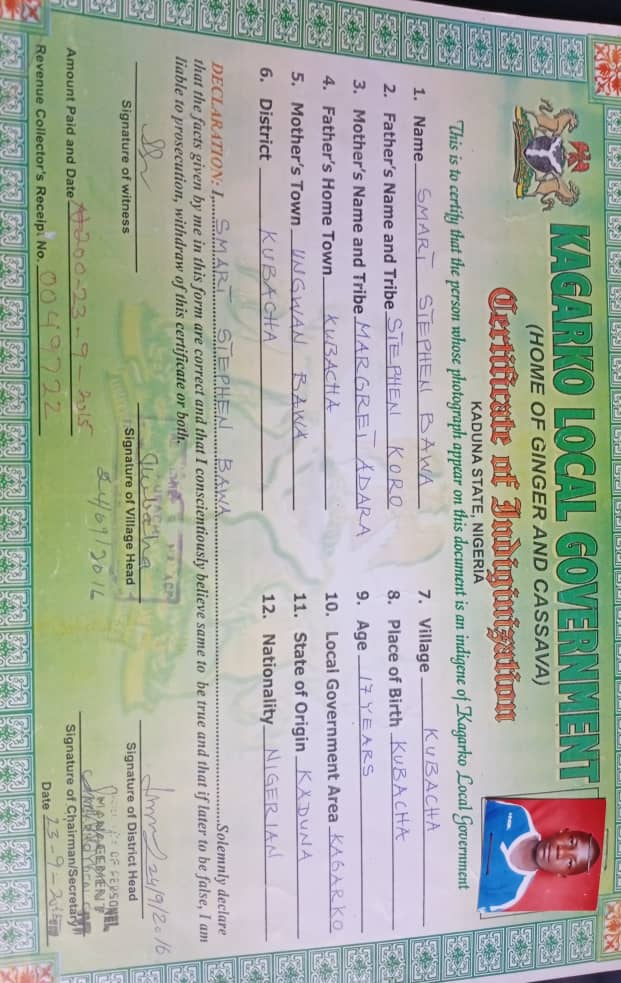 KAGARKO LOCAL GOVERNMENT
(HOME OF GINGER AND CASSAVA)
Certificate of Indiginization
KADUNA STATE, NIGERIA
This is to certify that the person whose photograph appear on this document is an indigene of Kagarko Local Government
1. Name SMART STEPHEN BAWA
2. Father's Name and Tribe STEPHEN KORO
3. Mother's Name and Tribe MARGRET ADARA
4. Father's Home Town KUBACHA
5. Mother's Town UNGWAN BAWA
6. District KUBACHA
7. Village KUBACHA
8. Place of Birth KUBACHA
9. Age 17 YEARS
10. Local Government Area KAGARKO
11. State of Origin KADUNA
12. Nationality NIGERIAN
DECLARATION: I, SMART STEPHEN BAWA Solemnly declare
that the facts given by me in this form are correct and that I conscientiously believe same to be true and that if later to be false, I am
liable to prosecution, withdraw of this certificate or both.
Signature of witness
Kubacha
Signature of Village Head
24/09/2016
24/9/2016
Signature of District Head
Amount Paid and Date ₦200-23-9-2015
Revenue Collector's Receipt No. 0049722
OF PERSONEL
MANAGEMENT
Signature of Chairman/Secretary
Date 23-9-